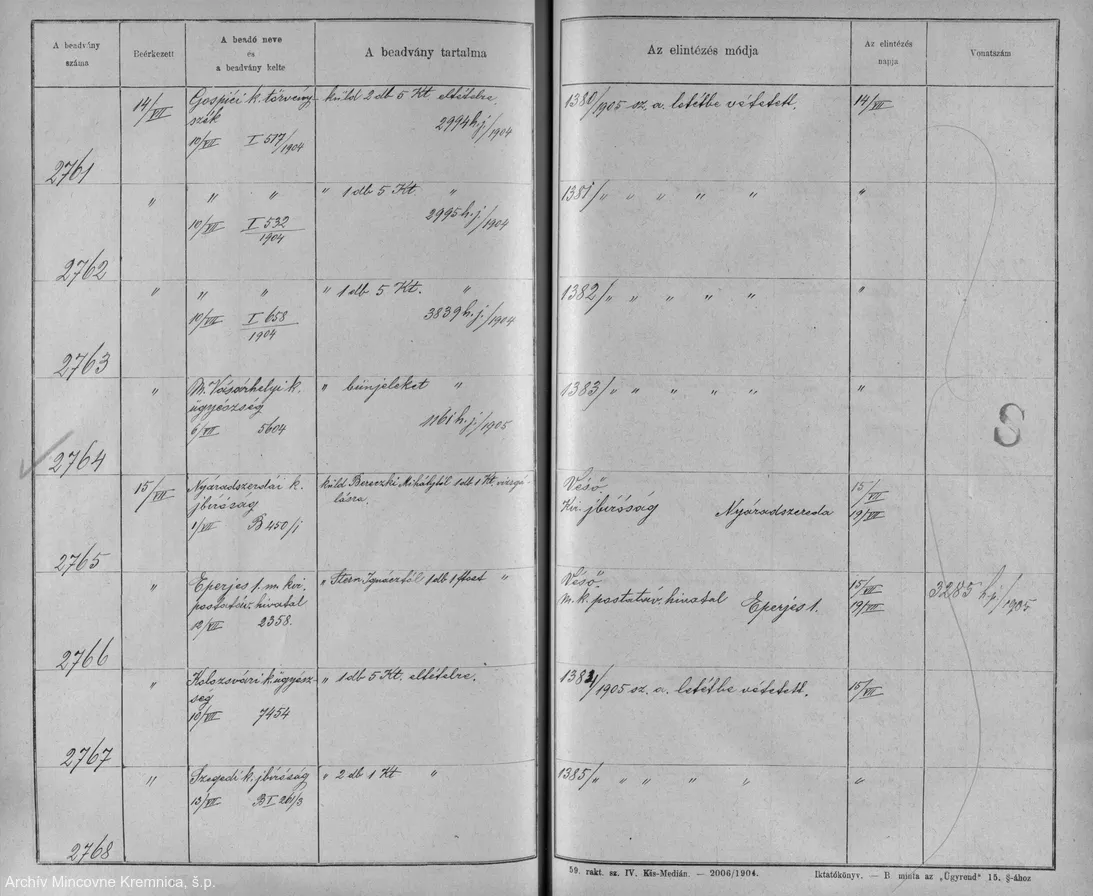 A beadvány száma
Beérkezett
A beadó neve és a beadvány kelte
A beadvány tartalma
Az elintézés módja
Az elintézés napja
Vonatszám
14/VII
Gospići k. törvény-
szék
10/VII I 577/1904
küld 2 db 5 Kt. eltételre.
2994 h.j./1904
1380/1905 sz. a. letétbe vétetett.
14/VII
2761
" " "
10/VII I 532/1904
" 1 db 5 Kt. "
2995 h.j./1904
1381/" " " " "
"
2762
" " "
10/VII I 658/1904
" 1 db 5 Kt. "
3839 h.j./1904
1382/" " " " "
"
2763
" M. Vásárhelyi k.
ügyészség
6/VII 5604
" bünjeleket "
1161 h.j./1905
1383/" " " " "
"
S
2764
15/VII
Nyárádszerdai k.
jbíróság
1/VII B 450/1
küld Bereczki Mihálytól 1 db 1 Kt. vizsgá-
lásra.
Véső.
Kir. jbíróság Nyárádszereda
15/VII
19/VII
2765
" Eperjes 1. m. kir.
postatáv. hivatal
12/VII 2358.
" Stern Ignácztól 1 db 1 ftost "
Véső.
M. k. postatáv. hivatal Eperjes 1.
15/VII
19/VII
3285 h.j./1905
2766
" Kolozsvári k. ügyész-
ség
10/VII 7454
" 1 db 5 Kt. eltételre.
1384/1905 sz. a. letétbe vétetett.
15/VII
2767
" Szegedi k. jbíróság
13/VII B I 261/3
" 2 db 1 Kt "
1385/" " " " "
"
2768
59. rakt. sz. IV. Kis-Medián. — 2006/1904.
Iktatókönyv. — B. minta az „Ügyrend" 15. §-ához
Archív Mincovne Kremnica, š.p.